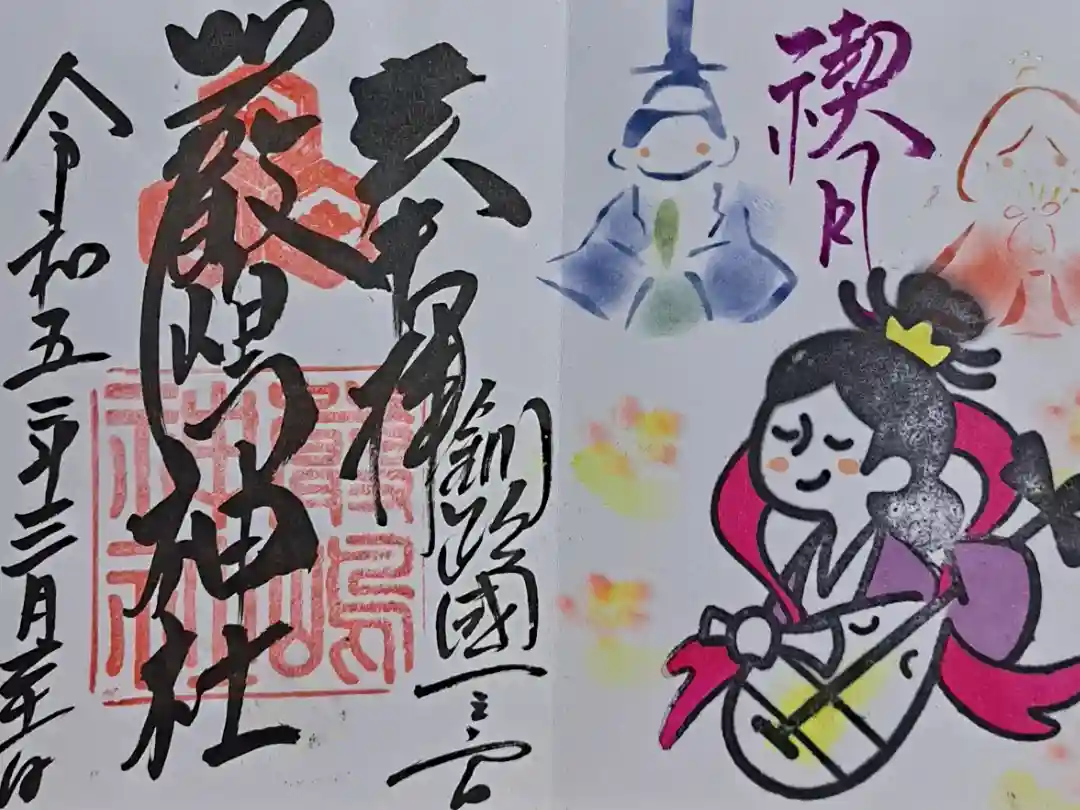 禊月
奉拝
釧路國一之宮
嚴嶋神社
令和五年三月吉日
嚴嶋
神社